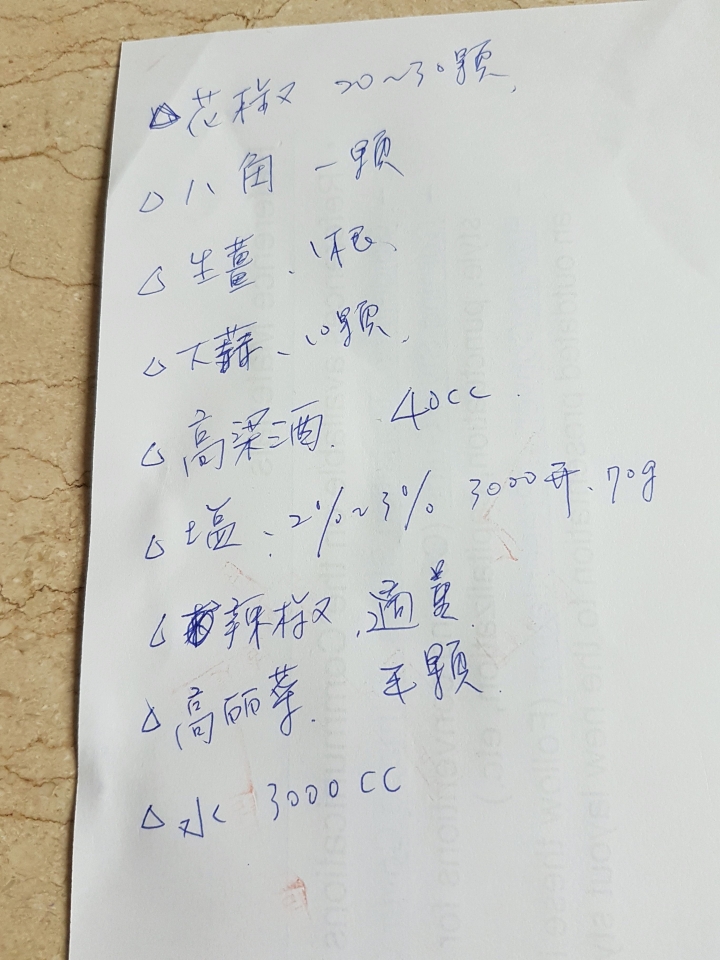 △花椒 20~30顆、
△八角 一顆
△生薑、1根、
△大蒜、10顆、
△高梁酒. 40cc.
△塩:2%~3% 3000 、70g
△辣椒、適量
△高丽菜. 半顆
△水 3000CC